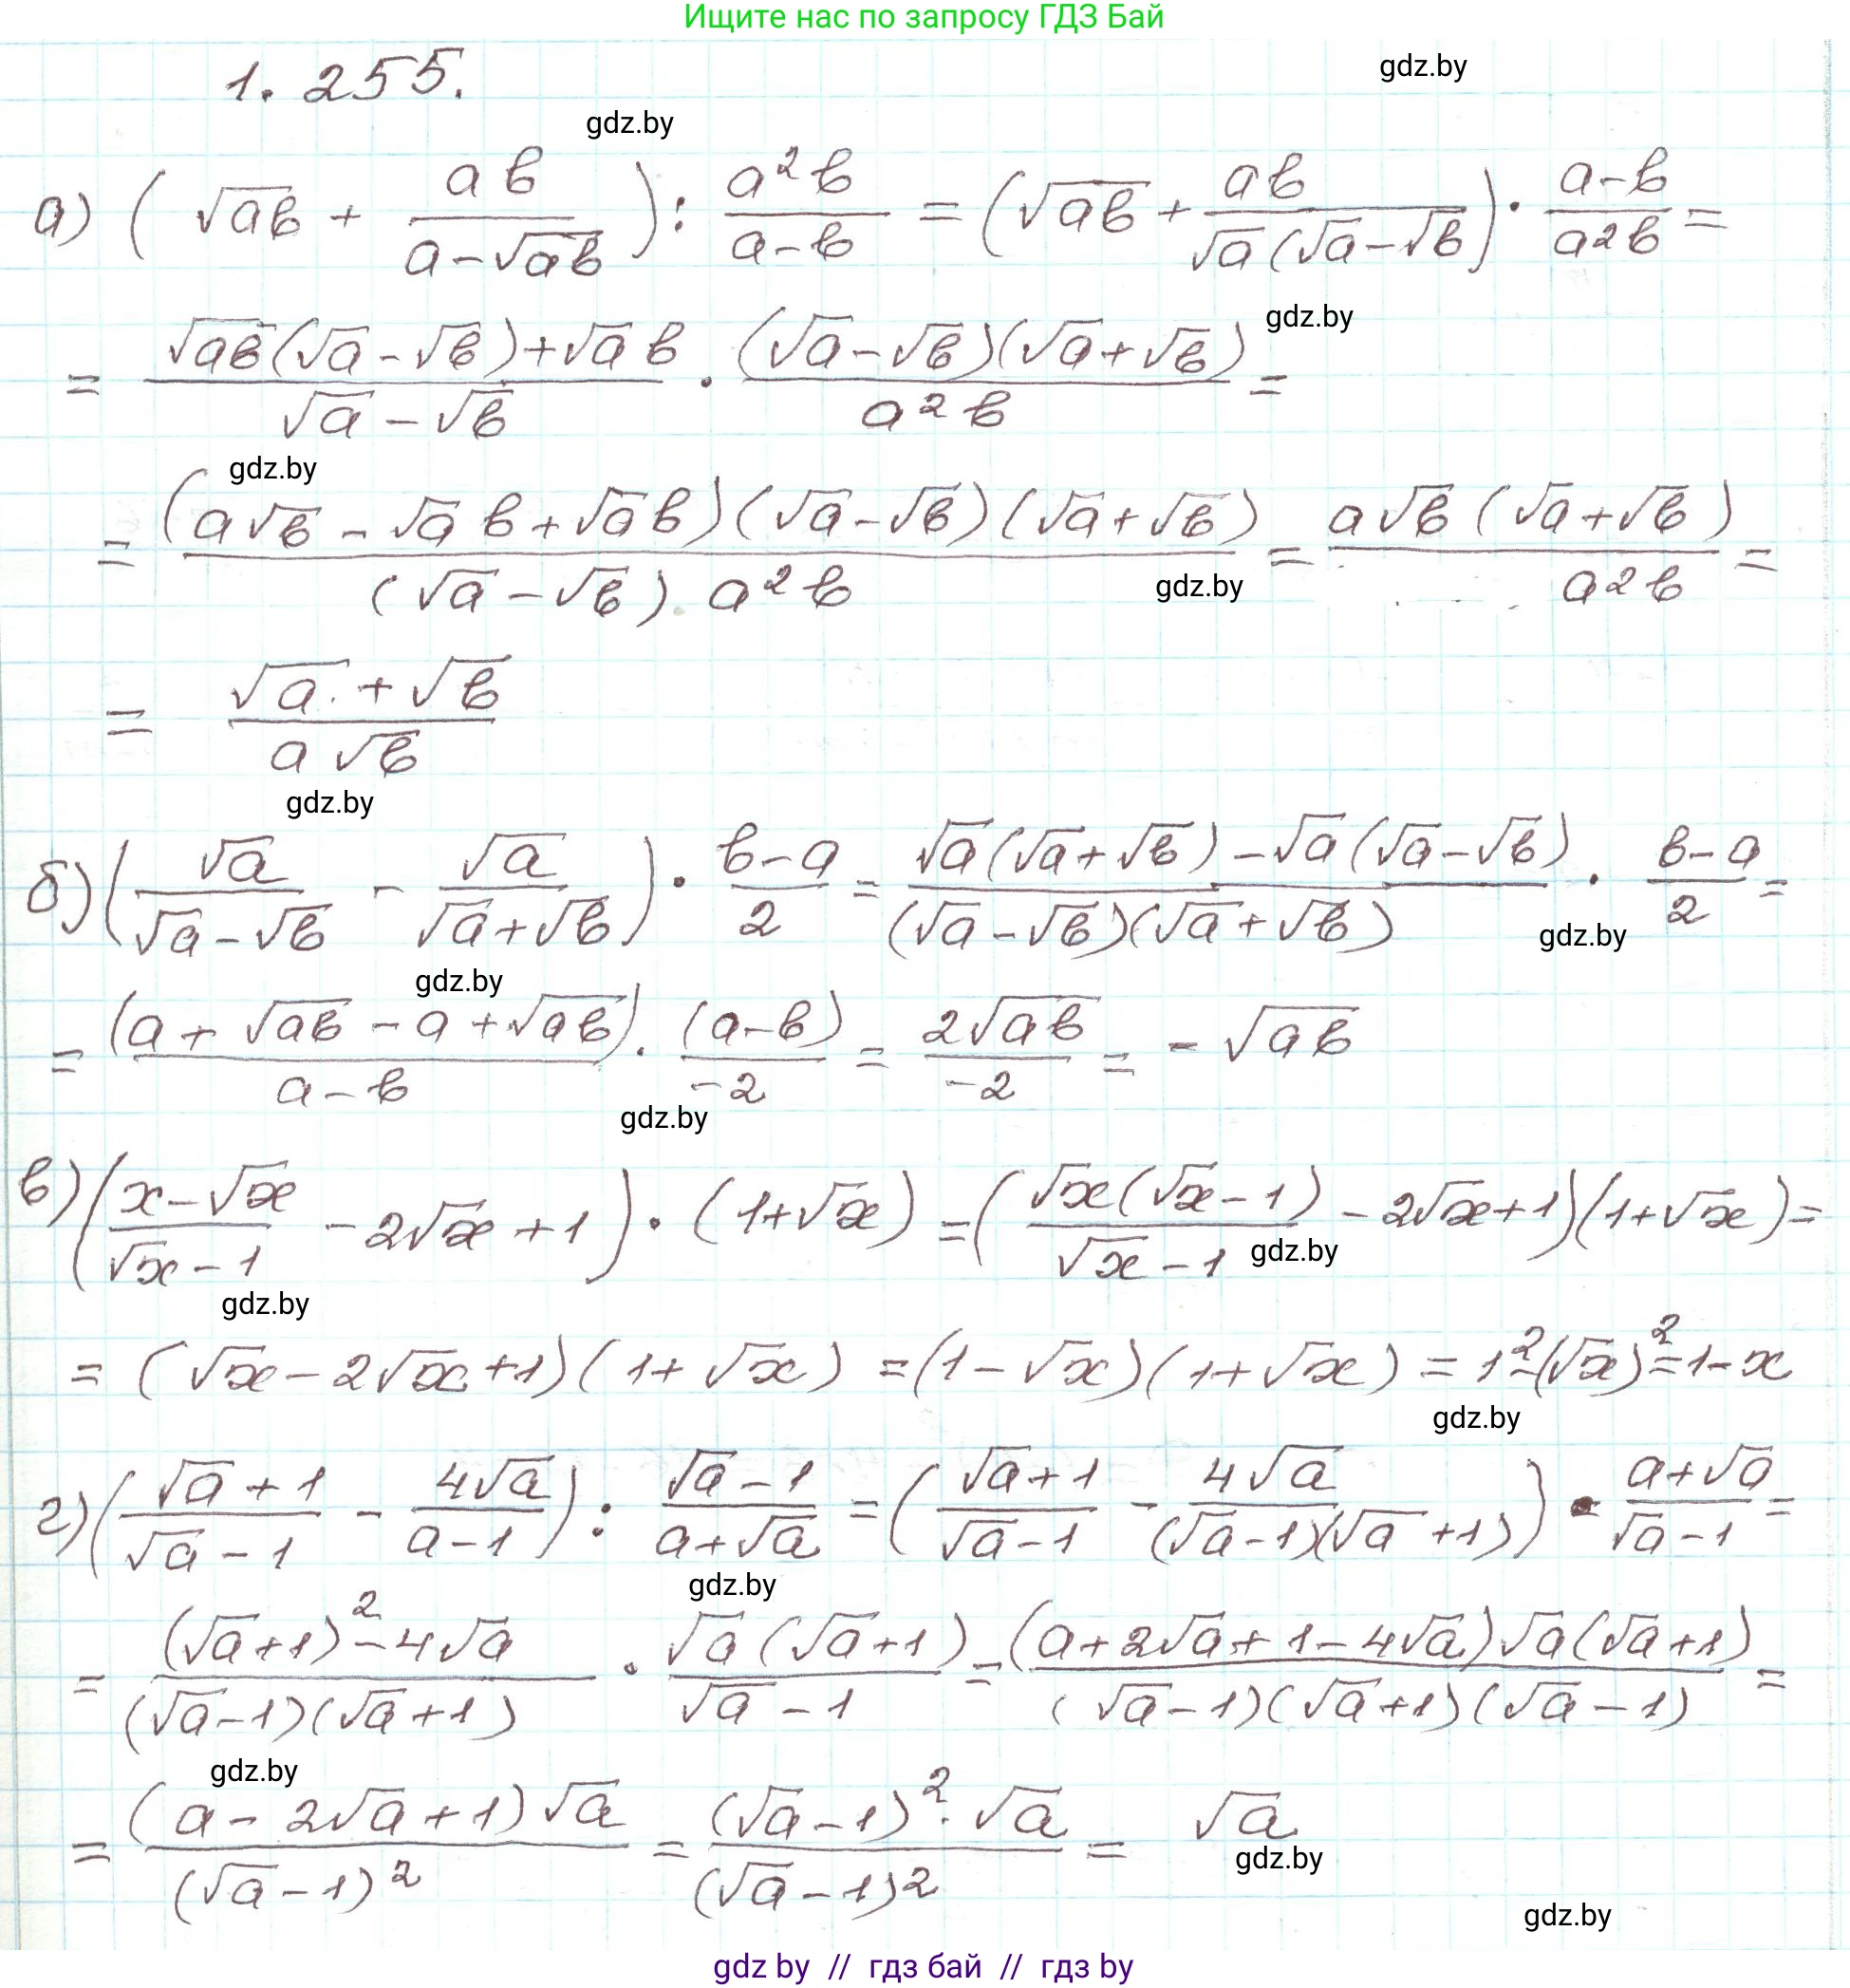 Ищите нас по запросу ГДЗ Бай
1. 255.
gdz.by
gdz.by
а) (√ab + ab/(a-√ab)) : a²b/(a-b) = (√ab + ab/(√a(√a-√b))) · (a-b)/(a²b) =
gdz.by
= (√ab(√a-√b)+√a b)/(√a-√b) · ((√a-√b)(√a+√b))/(a²b) =
gdz.by
= ((a√b - √a b + √a b)(√a-√b)(√a+√b))/((√a-√b) · a²b) = (a√b(√a+√b))/(a²b) =
gdz.by
= (√a + √b)/(a√b)
gdz.by
б) (√a/(√a-√b) - √a/(√a+√b)) · (b-a)/2 = (√a(√a+√b) - √a(√a-√b))/((√a-√b)(√a+√b)) · (b-a)/2 =
gdz.by
gdz.by
= (a + √ab - a + √ab)/(a-b) · (a-b)/(-2) = 2√ab/(-2) = - √ab
gdz.by
в) ((x-√x)/(√x-1) - 2√x + 1) · (1+√x) = (√x(√x-1)/(√x-1) - 2√x+1)(1+√x) =
gdz.by
gdz.by
= (√x - 2√x + 1)(1+√x) = (1-√x)(1+√x) = 1²-(√x)² = 1-x
gdz.by
г) ((√a+1)/(√a-1) - 4√a/(a-1)) : (√a-1)/(a+√a) = ((√a+1)/(√a-1) - 4√a/((√a-1)(√a+1))) · (a+√a)/(√a-1) =
gdz.by
= ((√a+1)²-4√a)/((√a-1)(√a+1)) · (√a(√a+1))/(√a-1) = ((a+2√a+1-4√a)√a(√a+1))/((√a-1)(√a+1)(√a-1)) =
gdz.by
= ((a-2√a+1)√a)/(√a-1)² = ((√a-1)²·√a)/(√a-1)² = √a
gdz.by
gdz.by
gdz by // гдз бай // гдз by